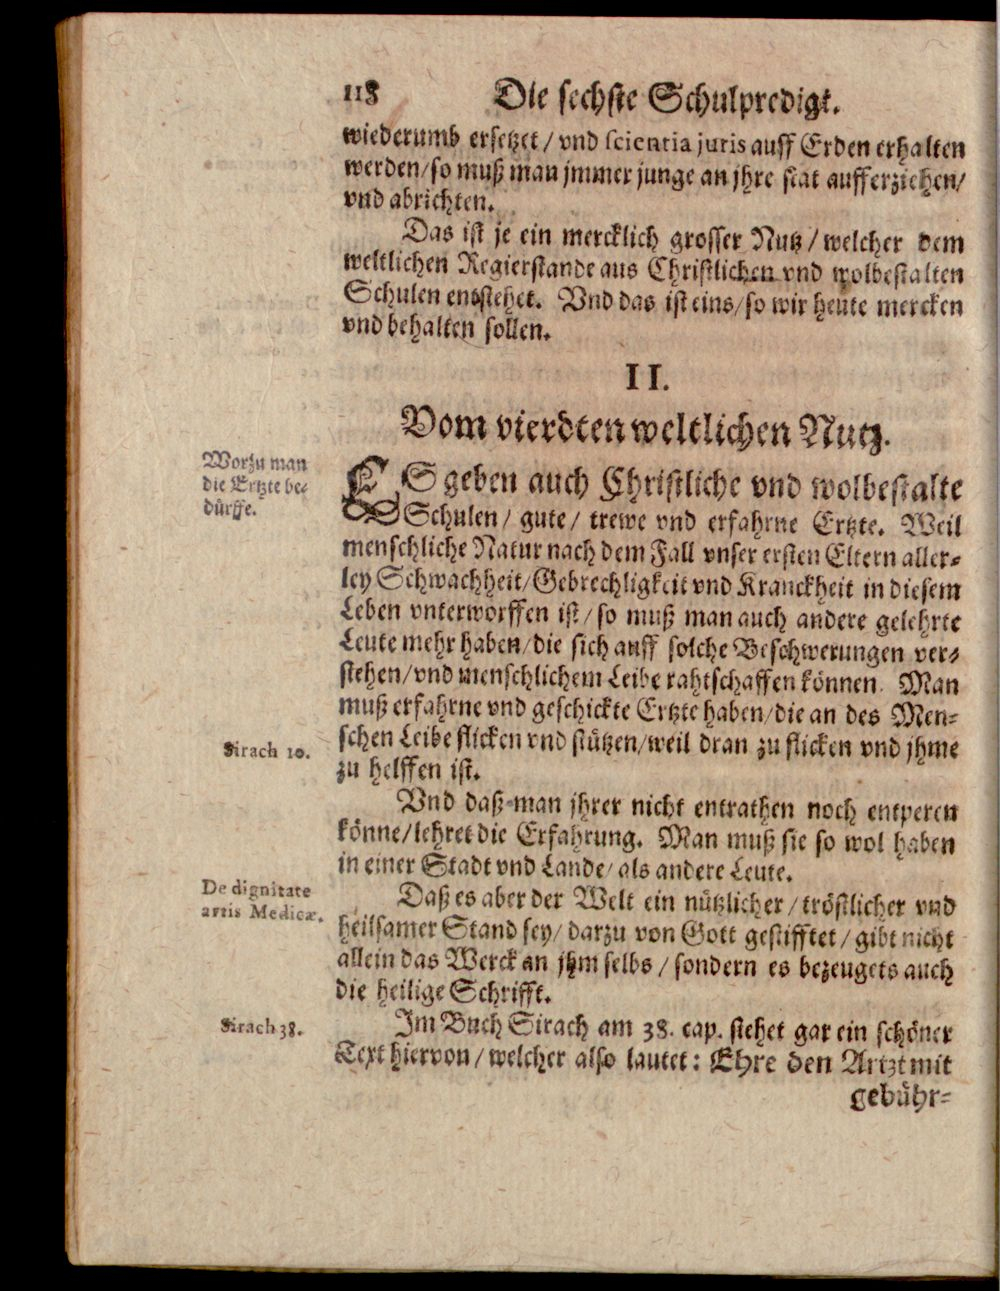 118 Die sechste Schulpredigt.
wiederumb ersetzet / vnd scientia juris auff Erden erhalten
werden / so muß man jmmer junge an jhre stat aufferziehen /
vnd abrichten.
Das ist je ein mercklich grosser Nutz / welcher dem
weltlichen Regierstande aus Christlichen vnd wolbestalten
Schulen entstehet. Vnd das ist eins / so wir heute mercken
vnd behalten sollen.
II.
Vom vierdten weltlichen Nutz.
Worzu man
die Ertzte be-
dürffe.
ES geben auch Christliche vnd wolbestalte
Schulen / gute / trewe vnd erfahrne Ertzte. Weil
menschliche Natur nach dem Fall vnser ersten Eltern aller-
ley Schwachheit / Gebrechligkeit vnd Kranckheit in diesem
Leben vnterworffen ist / so muß man auch andere gelehrte
Leute mehr haben / die sich auff solche Beschwerungen ver-
stehen / vnd menschlichem Leibe rahtschaffen können. Man
muß erfahrne vnd geschickte Ertzte haben / die an des Men-
schen Leibe flicken vnd stützen / weil dran zu flicken vnd jhme
Sirach 10.
zu helffen ist.
Vnd daß man jhrer nicht entrathen noch entperen
könne / lehret die Erfahrung. Man muß sie so wol haben
in einer Stadt vnd Lande / als andere Leute.
De dignitate
artis Medicæ.
Daß es aber der Welt ein nützlicher / tröstlicher vnd
heilsamer Stand sey / darzu von Gott gestifftet / gibt nicht
allein das Werck an jhm selbs / sondern es bezeugets auch
die heilige Schrifft.
Sirach 38.
Im Buch Sirach am 38. cap. stehet gar ein schöner
Text hiervon / welcher also lautet: Ehre den Artzt mit
gebühr-